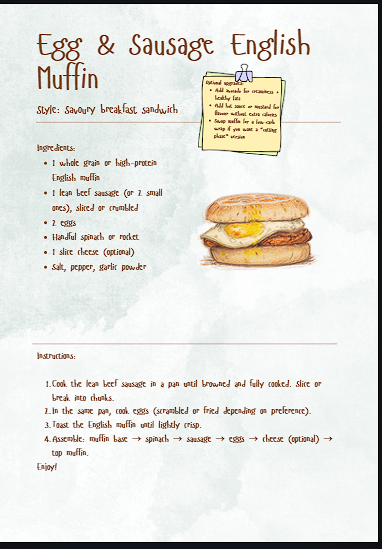 Egg & Sausage English
Muffin
Style: Savoury breakfast sandwich
Optional upgrades:
• Add avocado for creaminess +
healthy fats
• Add hot sauce or mustard for
flavour without extra calories
• Swap muffin for a low-carb
wrap if you want a "cutting
phase" version
Ingredients:
• 1 whole grain or high-protein
English muffin
• 1 lean beef sausage (or 2 small
ones), sliced or crumbled
• 2 eggs
• Handful spinach or rocket
• 1 slice cheese (optional)
• Salt, pepper, garlic powder
Instructions:
1. Cook the lean beef sausage in a pan until browned and fully cooked. Slice or
break into chunks.
2. In the same pan, cook eggs (scrambled or fried depending on preference).
3. Toast the English muffin until lightly crisp.
4. Assemble: muffin base → spinach → sausage → eggs → cheese (optional) →
top muffin.
Enjoy!